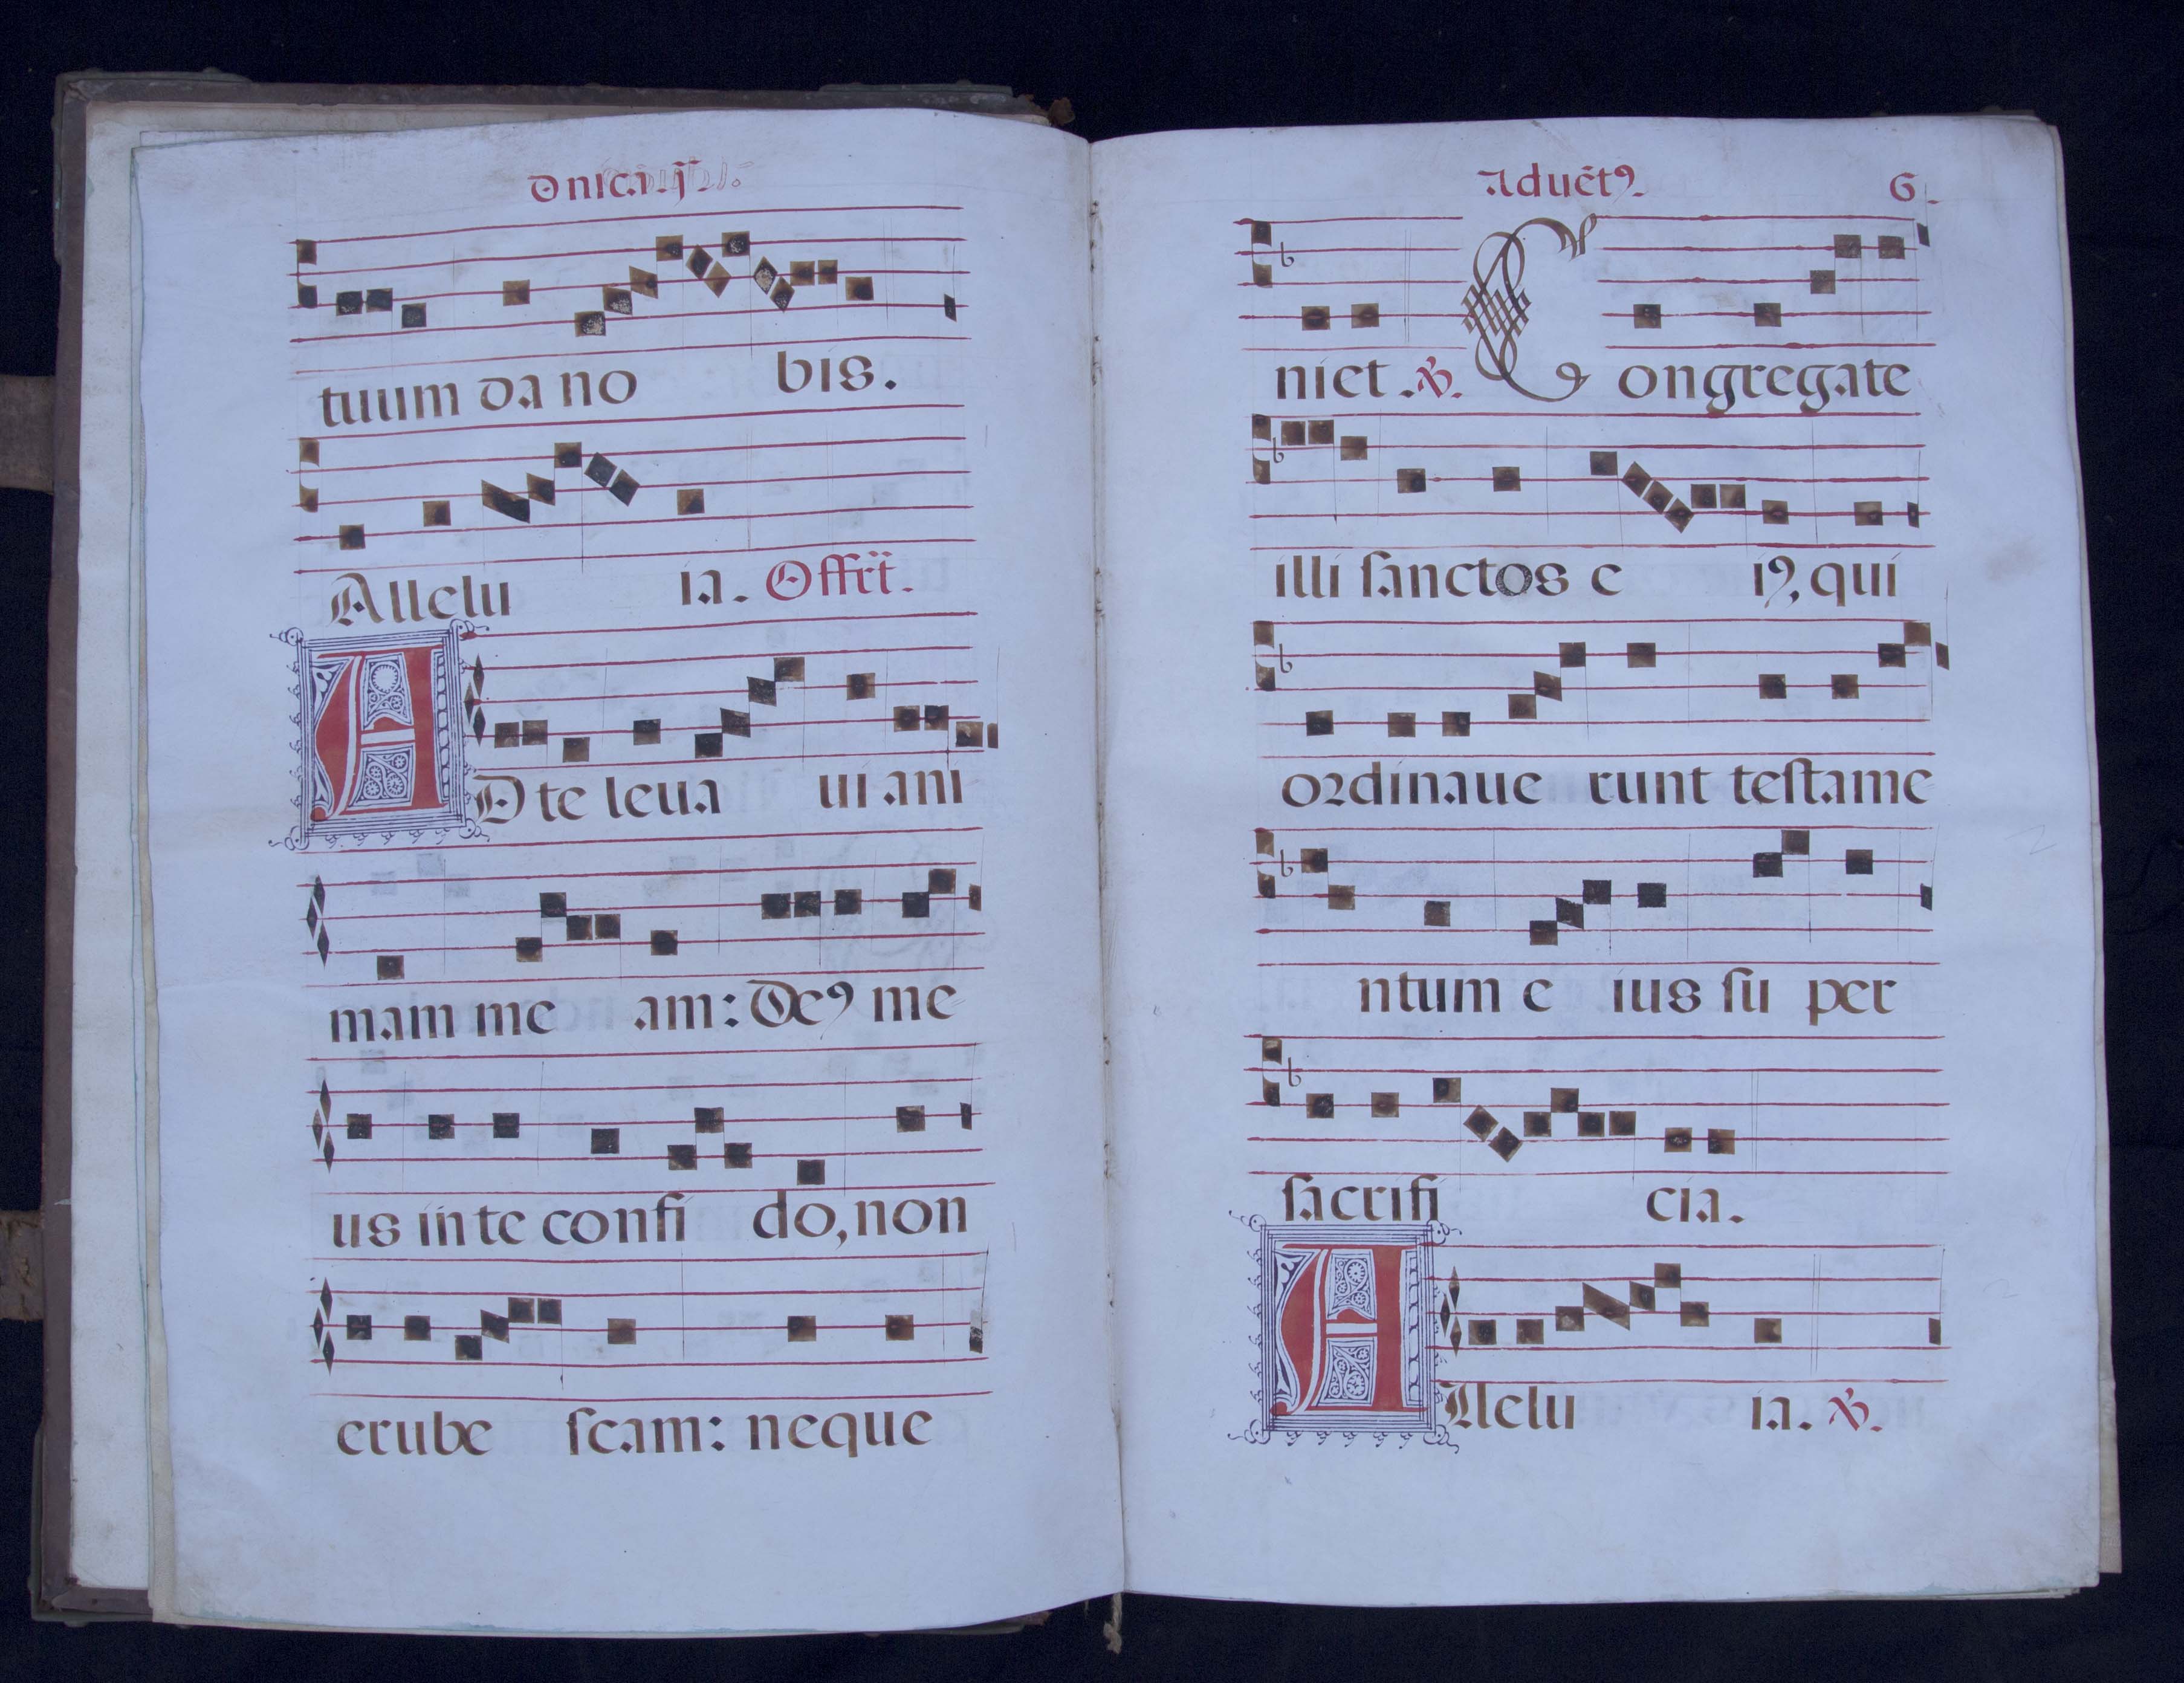 Dnica.ij.
tuum da no bis.
Allelu ia. Offrt.
AD te leua ui ani
mam me am: De9 me
us in te confi do, non
erube scam: neque
Aduēt9. 6.
niet. ℣. Congregate
illi sanctos e i9, qui
ordinaue runt testame
ntum e ius su per
sacrifi cia.
Allelu ia. ℣.